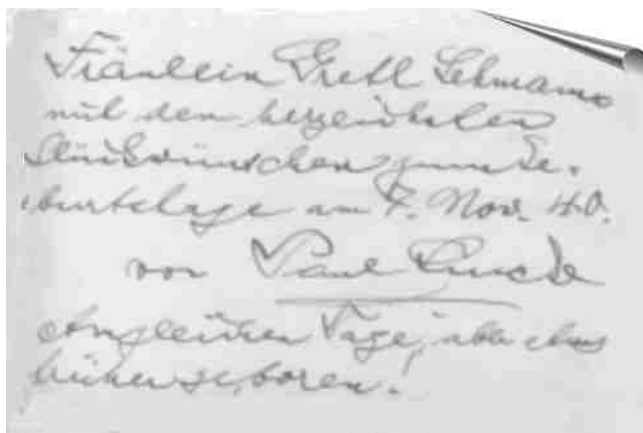 Fräulein Gretl Lehmann
mit den herzlichsten
Glückwünschen zum Ge-
burtstage am 7. Nov. 40.
von Paul Lincke
Am gleichen Tage, aber etwas
früher geboren!